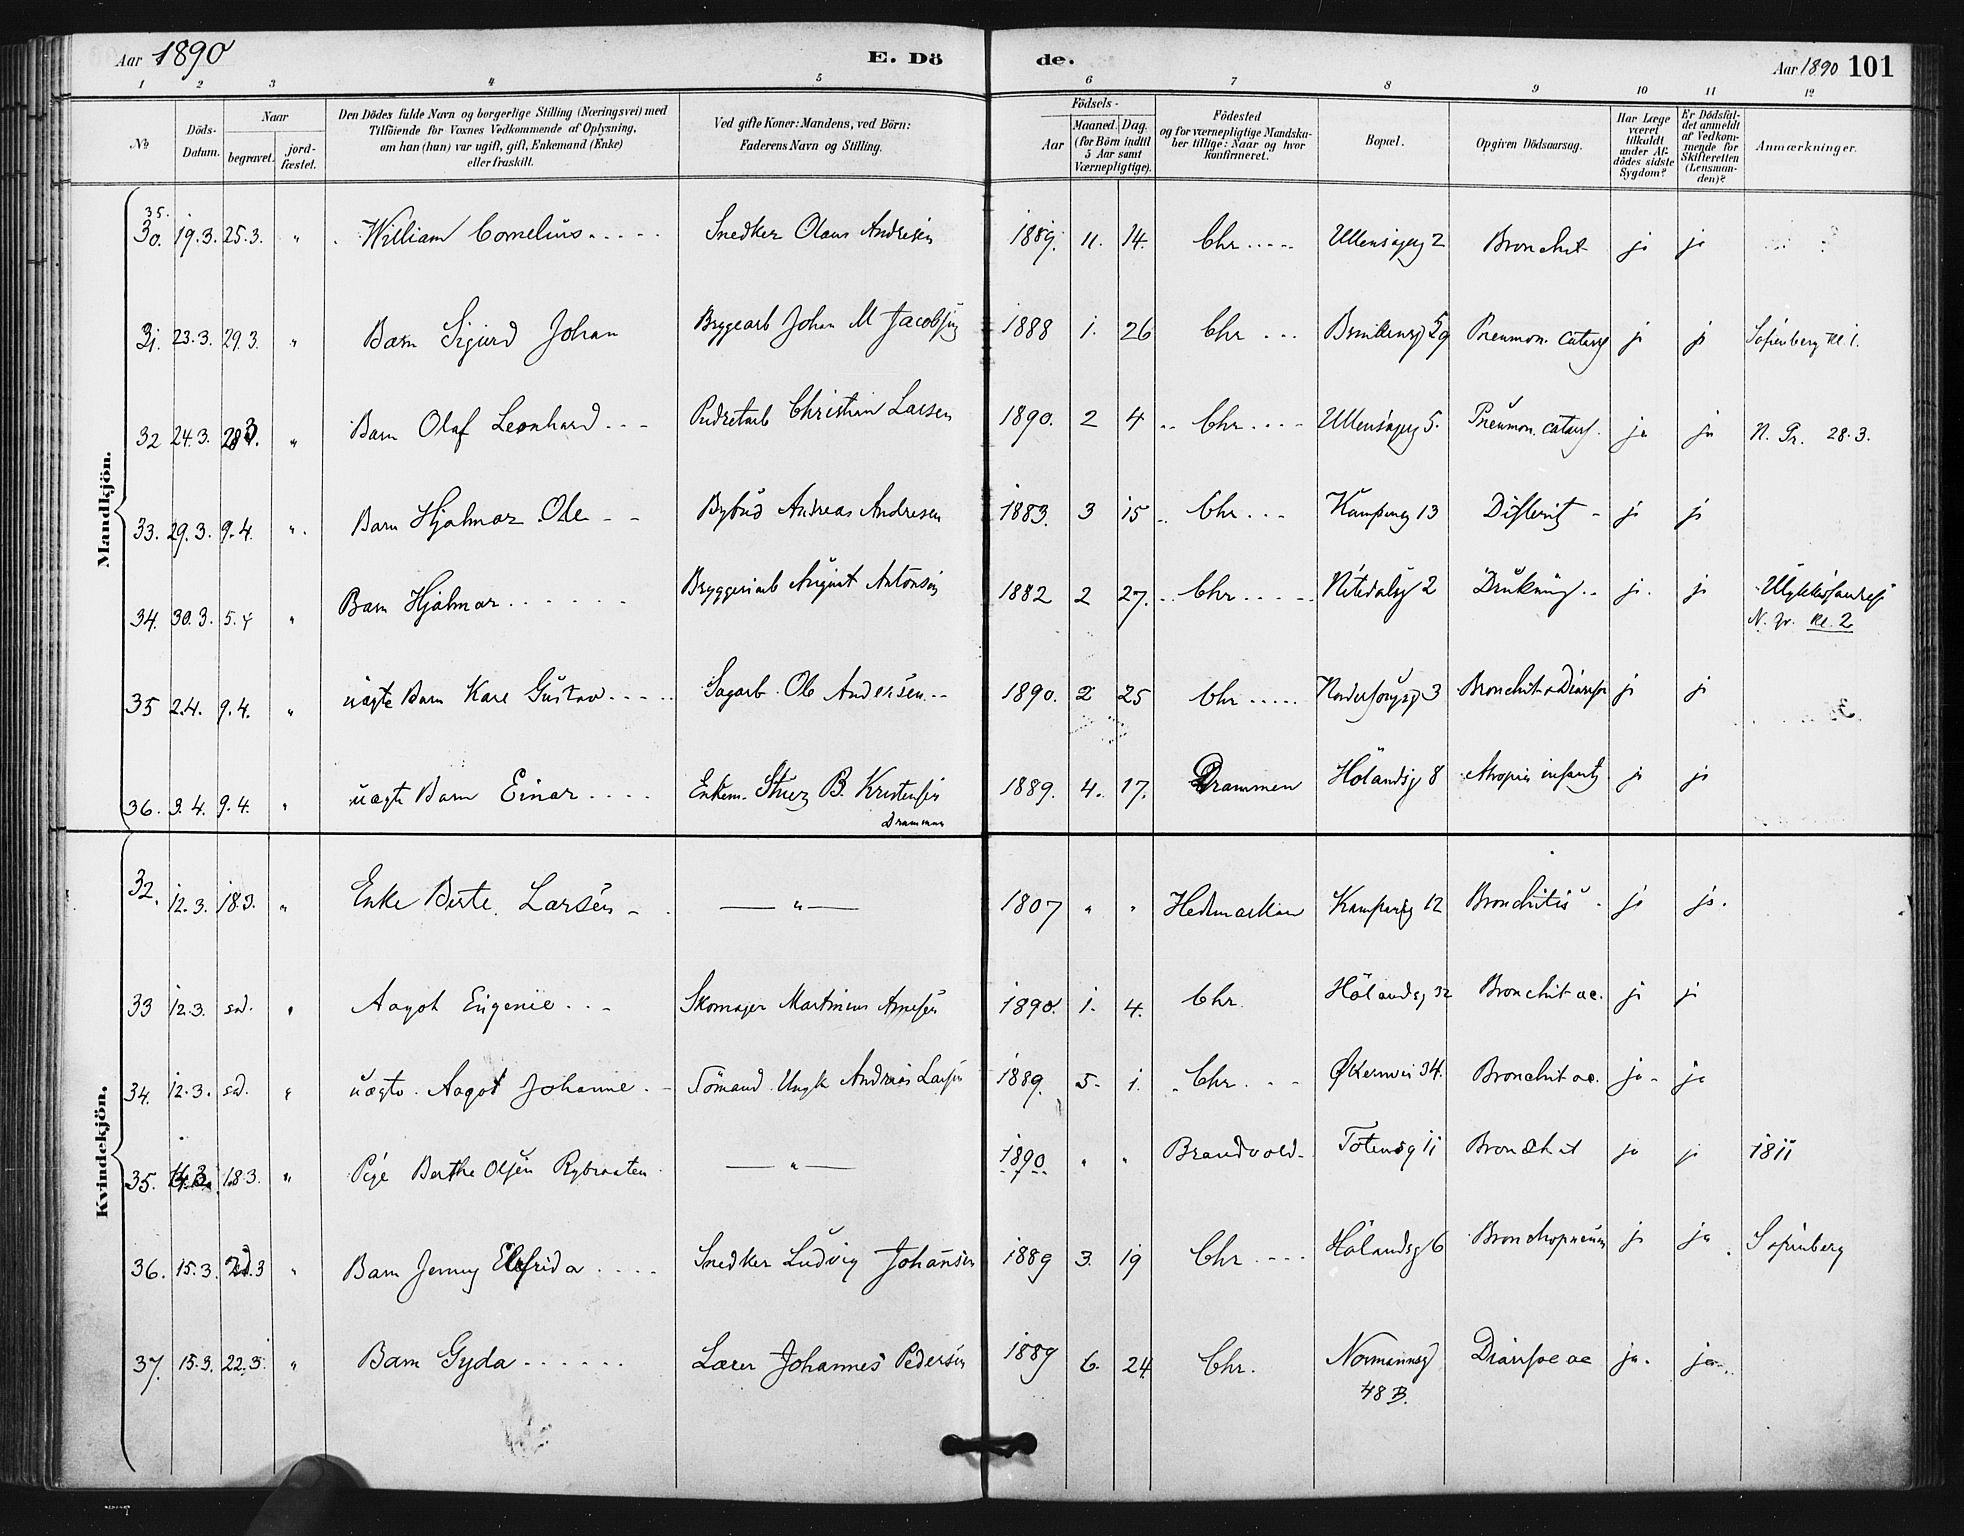 Aar 1890 E. Dö de. Aar 1890 101
1 2 3 4 5 6 7 8 9 10 11 12
No
Döds-Datum.
Naar
begravet.
jord-fæstet.
Den Dödes fulde Navn og borgerlige Stilling (Næringsvei) med
Tilföiende for Voxnes Vedkommende af Oplysning,
om han (hun) var ugift, gift, Enkemand (Enke)
eller fraskilt.
Ved gifte Koner: Mandens, ved Börn:
Faderens Navn og Stilling.
Födsels-
Aar
Maaned. Dag.
(for Börn indtil
5 Aar samt
Værnepligtige).
Födested
og for værnepligtige Mandska-
ber tillige: Naar og hvor
konfirmeret.
Bopæl.
Opgiven Dödsaarsag.
Har Læge
været
tilkaldt
under Af-
dödes sidste
Sygdom?
Er Dödsfal-
det anmeldt
af Vedkom-
mende for
Skifteretten
(Lensman-
den)?
Anmærkninger.
Mandkjön.
35.
30. 19.3. 25.3. " William Cornelius Snedker Olaus Andresen 1889. 11. 14. Chr Ullensagg 2 Bronchit ja ja
31. 23.3. 29.3. " Barn Sigurd Johan Bryggearb Johan M Jacobsen 1888 1. 26 Chr 59 Pneumon. catarrh ja ja Sofienberg Kl. 1.
32 24.3. 28.3. " Barn Olaf Leonhard Christian Larsen 1890. 2 4 Chr Ullensagg 5. Pneumon. catarrh. ja ja N. Gr. 28.3.
33. 29.3. 9.4. " Barn Hjalmar Ole Bybud Andreas Andresen 1883. 3 15 Chr Kampeng 13 Difterit ja ja
34. 30.3. 5.4 " Barn Hjalmar Bryggeriarb August Antonsen 1882 2 27. Chr Nitedalsg 2 Drukning ja ja
N. Gr. Kl. 2
35 2.4. 9.4. " uægte Barn Kare Gustav Sagarb. Ole Andersen 1890. 2 25 Chr 3 Bronchit & Diarrhe ja ja
36. 3.4. 9.4. " uægte Barn Einar Enkem. B. Kristensen 1889. 4. 17. Drammen Hölandsg 8 Atropia infant ja ja
Drammen
Kvindekjön.
32. 12.3. 18.3. " Enke Berte Larsen — " — 1807 " " Hedemarken Kampeng 12 Bronchitis ja ja.
33 12.3. sd. " Aagot Eugenie Skomager Martinius Arnesen 1890. 1. 4. Chr. Hölandsg 32 Bronchit ac. ja ja
34. 12.3. sd. " uægte Aagot Johanne Sömand Ungk Andreas Larsen 1889. 5. 1. Chr Økernvei 34. Bronchit ac. ja ja
35. 14.3. 18.3. " Pige Berthe Olsen Rybraaten — " — 1890 " " Brandvold Totensg 11 Bronchit ja ja 1811
36. 15.3. " Barn Jenny Elefrida Snedker Ludvig Johansen 1889 3. 19 Chr Hölandsg 6 Bronchopneum ja ja Sofienberg
37. 15.3. 22.3. " Barn Gyda Lærer Johannes Pedersen 1889 6. 24 Chr. Normannsg Diarrhoe ac ja. ja
48 B.